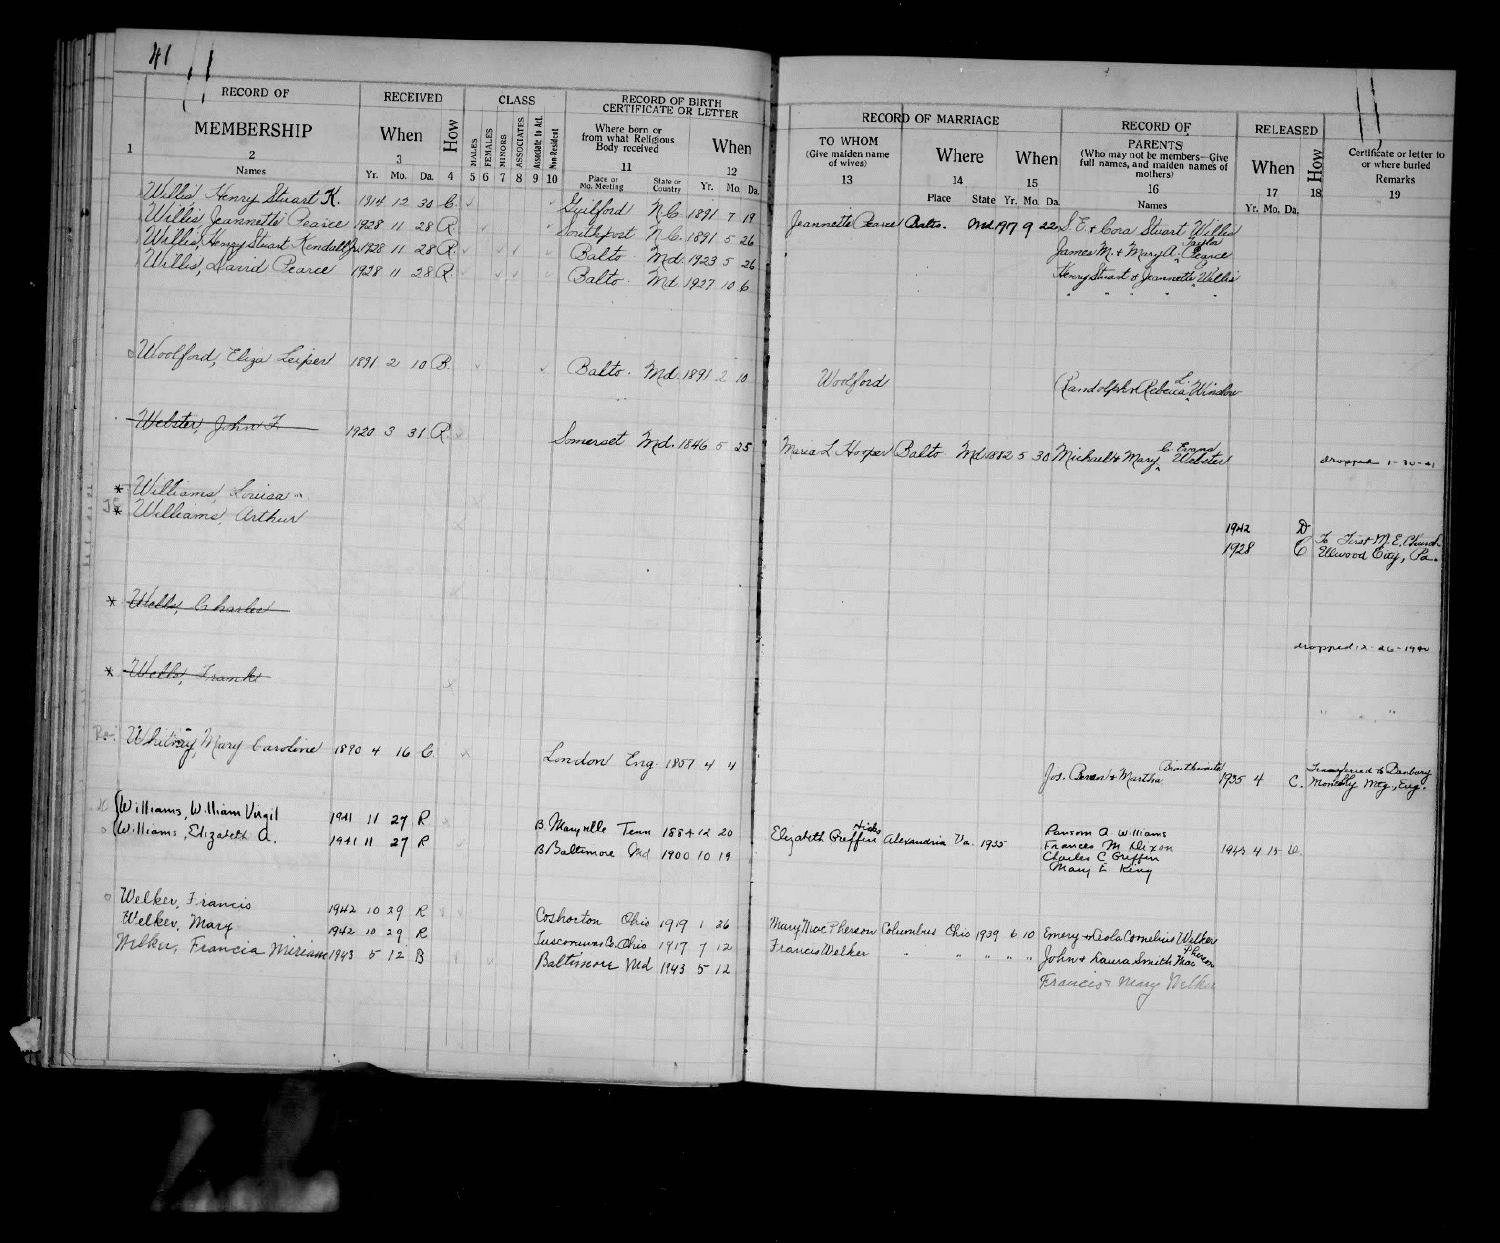 41
RECORD OF MEMBERSHIP
RECEIVED
CLASS
RECORD OF BIRTH CERTIFICATE OR LETTER
RECORD OF MARRIAGE
RECORD OF PARENTS
(Who may not be members—Give full names, and maiden names of mothers)
RELEASED
Certificate or letter to or where buried
Remarks
When
How
MALES
FEMALES
MINORS
ASSOCIATES
Associate to Act.
Non-Resident
Where born or from what Religious Body received
When
TO WHOM
(Give maiden name of wives)
Where
When
When
How
1 2 3 4 5 6 7 8 9 10 11 12 13 14 15 16 17 18 19
Names
Yr. Mo. Da.
Place or Mo. Meeting
State or Country
Yr. Mo. Da.
Place
State
Yr. Mo. Da.
Names
Yr. Mo. Da.
Willis, Henry Stuart K. 1914 12 30 C. Guilford N.C. 1891 7 19 Jeannette Pearce Balto. Md 1917 9 22 S. E. & Cora Stuart Willis
Willis, Jeannette Pearce 1928 11 28 R. Southport N.C. 1891 5 26 James M. & Mary A. Taylor Pearce
Willis, Henry Stuart Kendall Jr. 1928 11 28 R. Balto Md. 1923 5 26 Henry Stuart & Jeannette Willis
Willis, David Pearce 1928 11 28 R. Balto. Md 1927 10 6 " " " " "
Woolford, Eliza Leiper 1891 2 10 B. Balto. Md. 1891 2 10 Woolford Randolph & Rebecca L. Winslow
Webster, John F. 1920 3 31 R. Somerset Md. 1846 5 25 Maria L. Hooper Balto Md 1882 5 30 Michael & Mary C. Evans Webster dropped 1-30-41
* Williams, Louisa 1942 D
* Williams, Arthur 1928 C To First M. E. Church Ellwood City, Pa.
* Wells, Charles dropped 12-26-1940
* Wells, Frank " "
Whitney, Mary Caroline 1890 4 16 C. London Eng. 1857 4 4 Jos. Bevan & Martha Braithwaite 1935 4 C. Transferred to Banbury Monthly Mtg., Eng.
Williams, William Virgil 1941 11 27 R B. Maryville Tenn 1884 12 20 Elizabeth Griffin Hicks Alexandria Va. 1935 Ransom A Williams
Frances M Dixon
Williams, Elizabeth A. 1941 11 27 R B Baltimore Md 1900 10 19 Charles C Griffin
Mary E King
1943 4 15
Welker, Francis 1942 10 29 R Coshocton Ohio 1919 1 26 Mary MacPherson Columbus Ohio 1939 6 10 Emery & Leola Cornelius Welker
Welker, Mary 1942 10 29 R Tuscarawas Co. Ohio 1917 7 12 Francis Welker " " " " " John & Laura Smith MacPherson
Welker, Francia Miriam 1943 5 12 B Baltimore Md 1943 5 12 Francis & Mary Welker